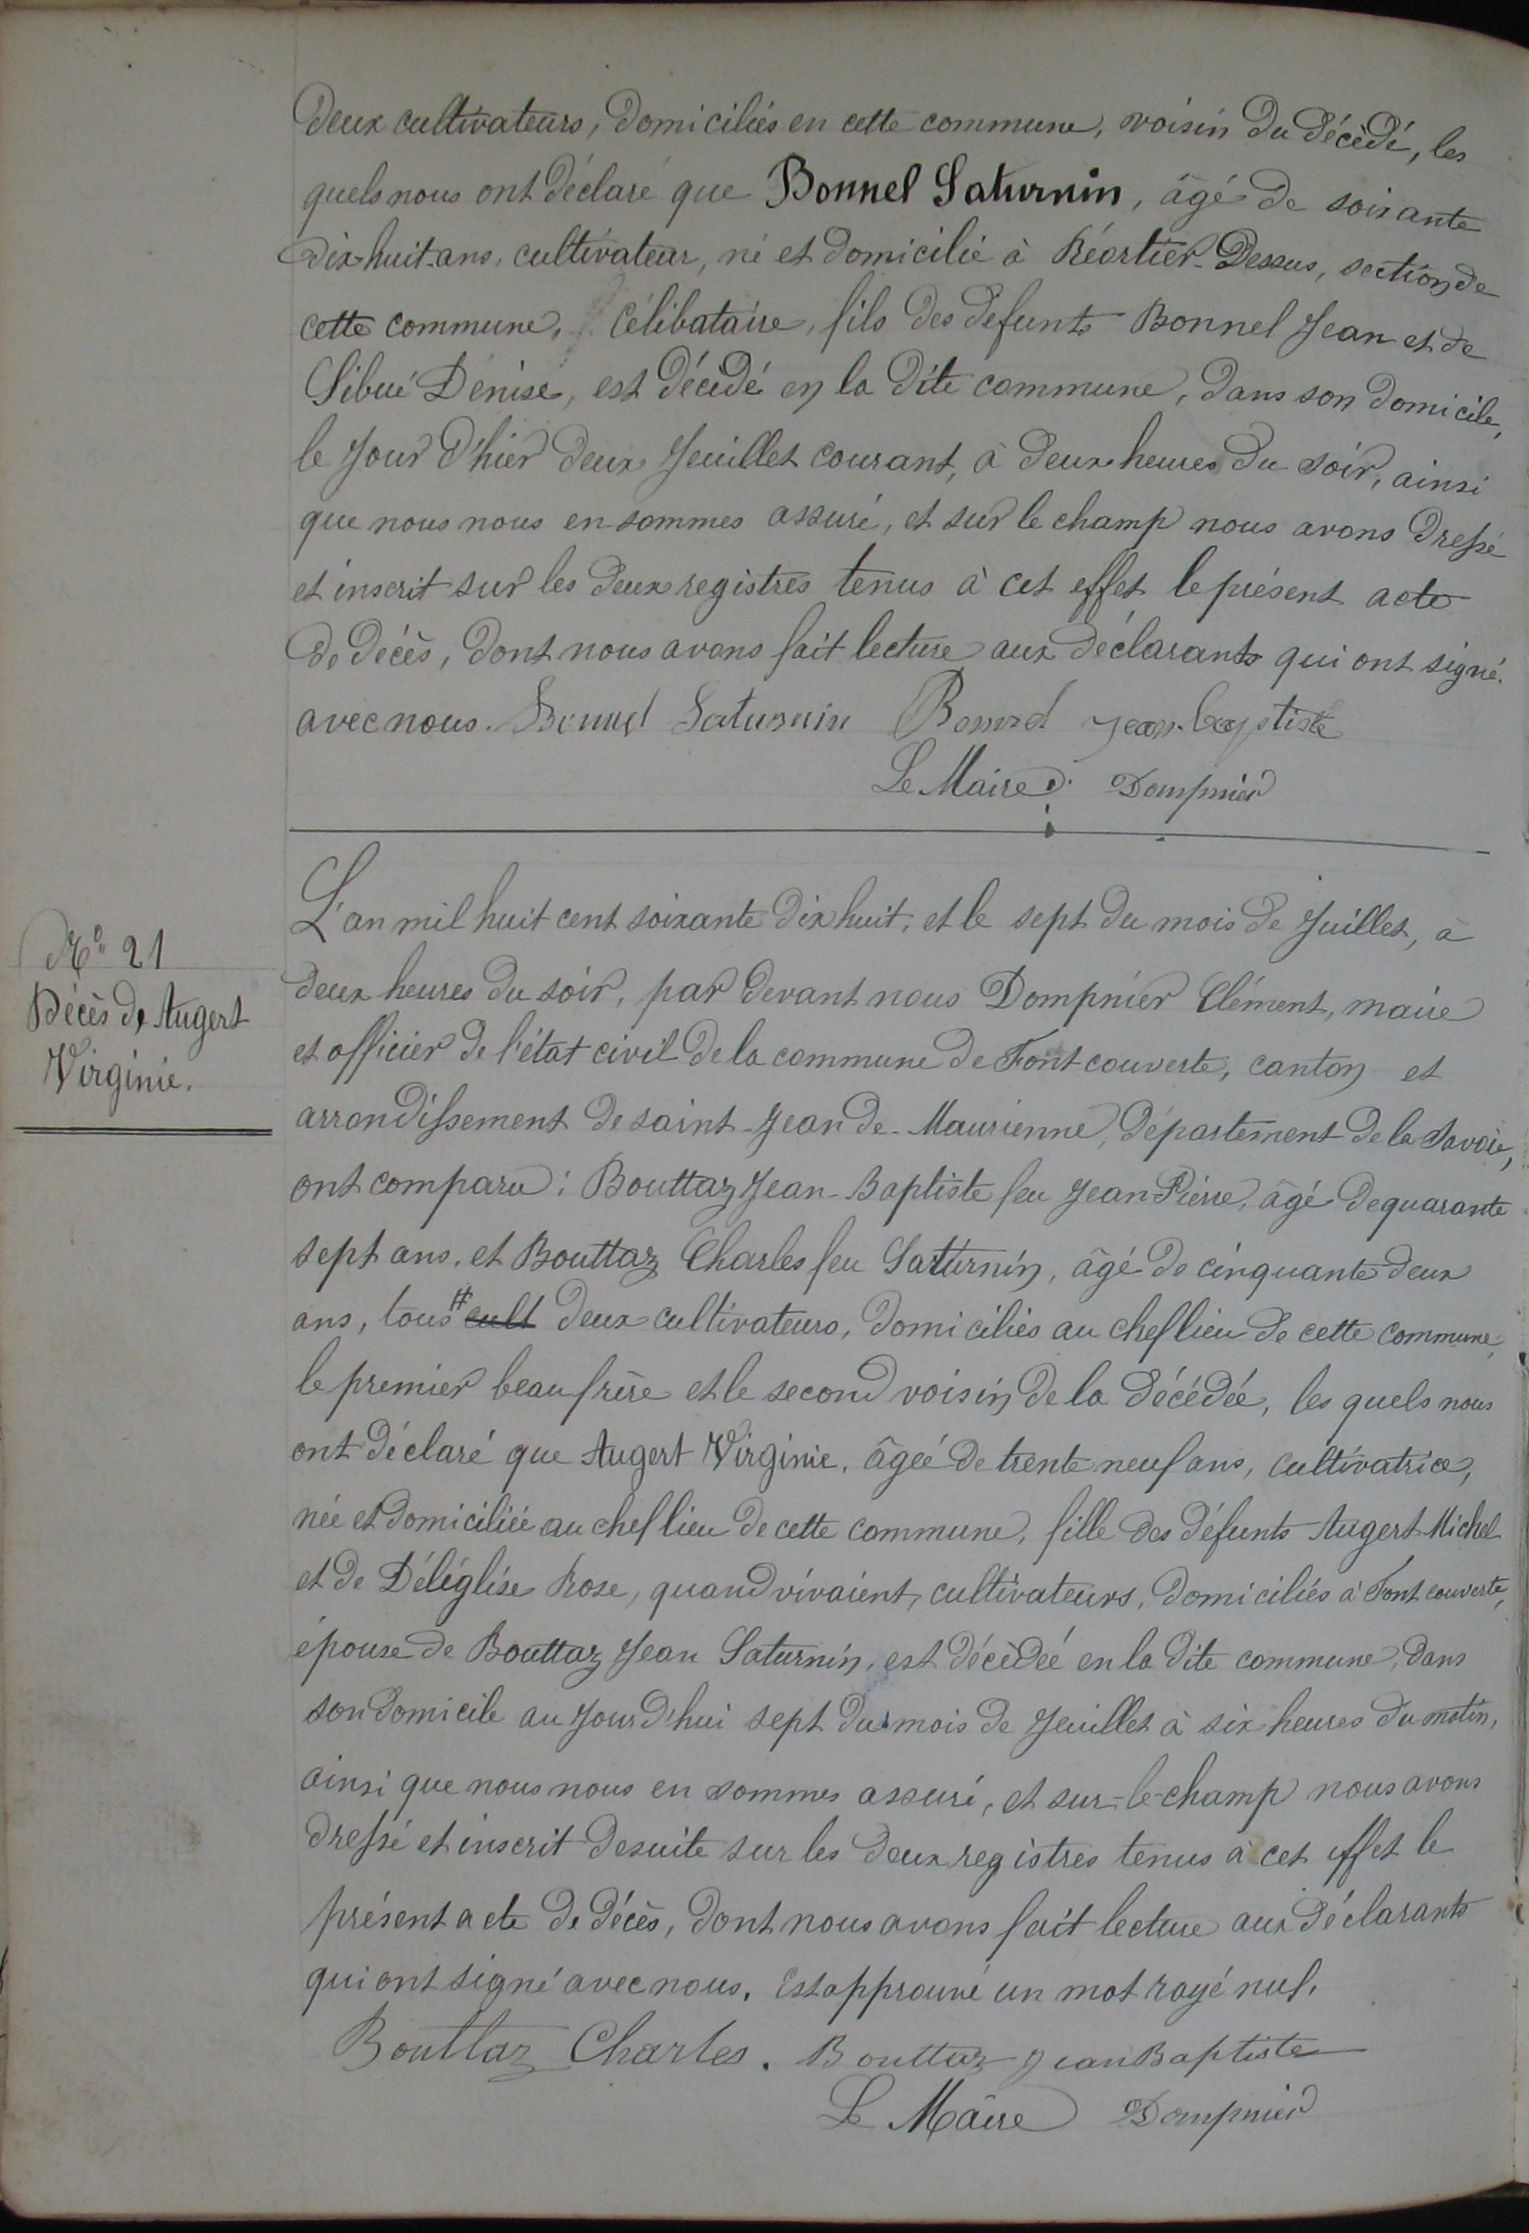 deux cultivateurs, domiciliés en cette commune, voisin du décédé, les
quels nous ont déclaré que Bonnel Saturnin, âgé de soixante
dix huit ans, cultivateur, né et domicilié à Réortier-Dessus, section de
cette commune, célibataire, fils des défunts Bonnel Jean et de
Sibué Denise, est décédé en la dite commune, dans son domicile,
le jour d'hier deux Jeuillet courant, à deux heures du soir, ainsi
que nous nous en sommes assuré, et sur le champ nous avons dressé
et inscrit sur les deux registres tenus à cet effet le présent acte
de décès, dont nous avons fait lecture aux déclarants qui ont signé.
avec nous. Bonnel Saturnin Bonnel jean-baptiste
Le Maire Dompnier
L'an mil huit cent soixante dix huit, et le sept du mois de Juillet, à
Nº 21
deux heures du soir, par devant nous Dompnier Clément, maire
Décès de Augert
et officier de l'état civil de la commune de Fontcouverte, canton et
Virginie.
arrondissement de saint-Jean de-Maurienne, département de la Savoie,
ont comparu : Bouttaz Jean-Baptiste feu Jean Pierre, âgé de quarante
sept ans, et Bouttaz Charles feu Saturnin, âgé de cinquante deux
ans, tous # cult deux cultivateurs, domiciliés au chef lieu de cette commune,
le premier beau frère et le second voisin de la décédée, les quels nous
ont déclaré que Augert Virginie, âgée de trente neuf ans, cultivatrice,
née et domiciliée au chef lieu de cette commune, fille des défunts Augert Michel
et de Déléglise Rose, quand vivaient, cultivateurs, domiciliés à Fontcouverte,
épouse de Bouttaz Jean Saturnin, est décédée en la dite commune, dans
son domicile au jourd'hui sept du mois de Jeuillet à six heures du matin,
ainsi que nous nous en sommes assuré, et sur-le-champ nous avons
dressé et inscrit de suite sur les deux registres tenus à cet effet le
présent acte de décès, dont nous avons fait lecture aux déclarants
qui ont signé avec nous. Est approuvé un mot rayé nul.
Bouttaz Charles. Bouttaz jean Baptiste
Le Maire Dompnier